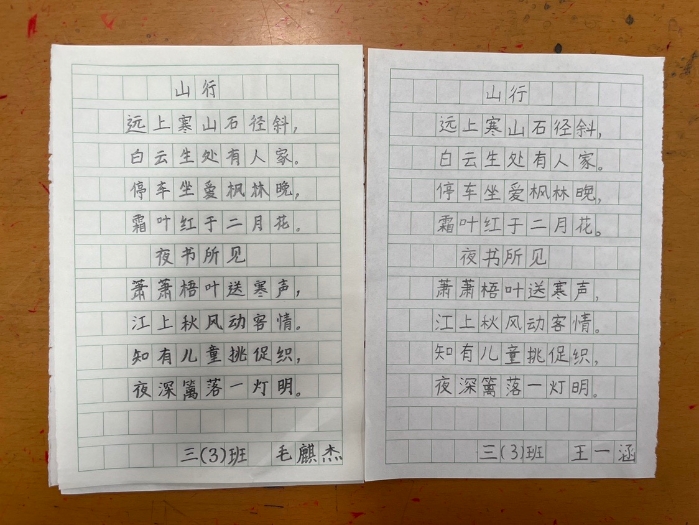 山行
远上寒山石径斜,
白云生处有人家。
停车坐爱枫林晚,
霜叶红于二月花。
夜书所见
萧萧梧叶送寒声,
江上秋风动客情。
知有儿童挑促织,
夜深篱落一灯明。
三(3)班 毛麒杰
山行
远上寒山石径斜,
白云生处有人家。
停车坐爱枫林晚,
霜叶红于二月花。
夜书所见
萧萧梧叶送寒声,
江上秋风动客情。
知有儿童挑促织,
夜深篱落一灯明。
三(3)班 王一涵